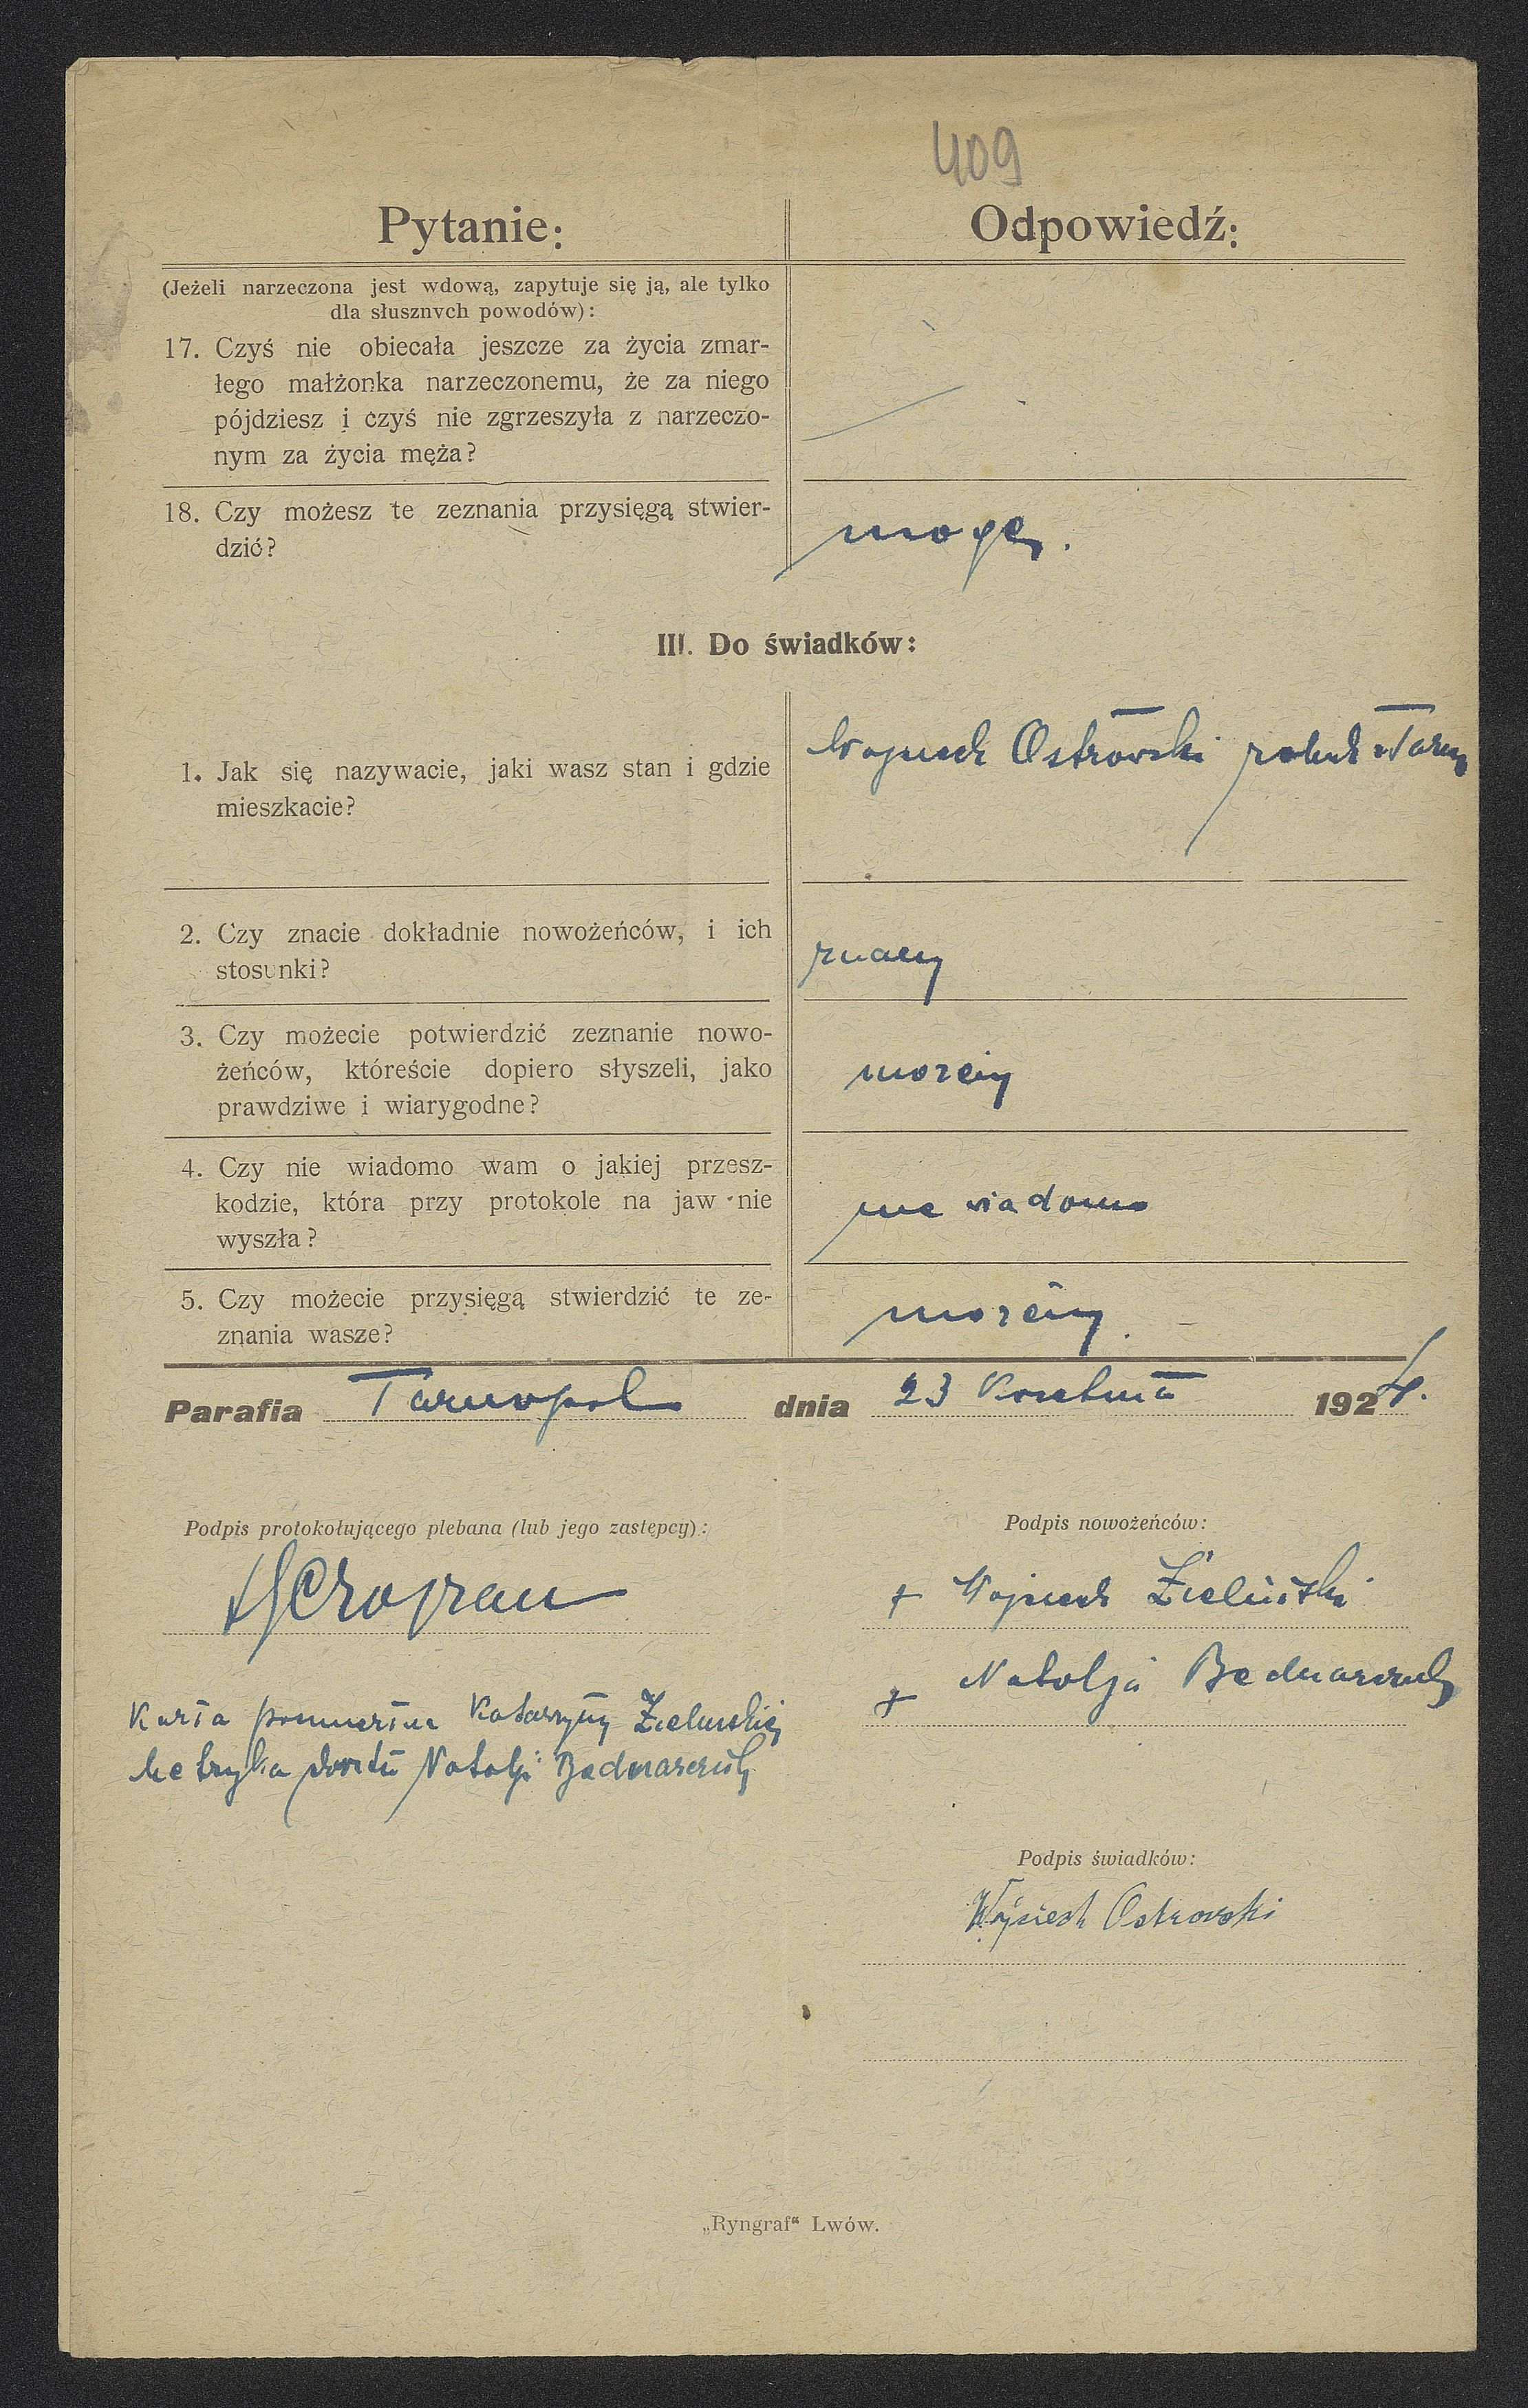 409
Pytanie:
Odpowiedź:
(Jeżeli narzeczona jest wdową, zapytuje się ją, ale tylko
dla słusznych powodów):
17. Czyś nie obiecała jeszcze za życia zmar-
łego małżonka narzeczonemu, że za niego
pójdziesz i czyś nie zgrzeszyła z narzeczo-
nym za życia męża?
18. Czy możesz te zeznania przysięgą stwier-
dzić?
mogę.
III. Do świadków:
1. Jak się nazywacie, jaki wasz stan i gdzie
mieszkacie?
Wojciech Ostrowski
2. Czy znacie dokładnie nowożeńców, i ich
stosunki?
znamy
3. Czy możecie potwierdzić zeznanie nowo-
żeńców, któreście dopiero słyszeli, jako
prawdziwe i wiarygodne?
możemy
4. Czy nie wiadomo wam o jakiej przesz-
kodzie, która przy protokole na jaw nie
wyszła?
nie wiadomo
5. Czy możecie przysięgą stwierdzić te ze-
znania wasze?
możemy
Parafia Tarnopol dnia 23 Kwietnia 1924.
Podpis protokołującego plebana (lub jego zastępcy):
Podpis nowożeńców:
+ Wojciech Zieliński
+ Natalja Bednarczuk
Katarzyny Zielińskiej
Metryka Natalji Bednarczuk
Podpis świadków:
Wojciech Ostrowski
„Ryngraf“ Lwów.